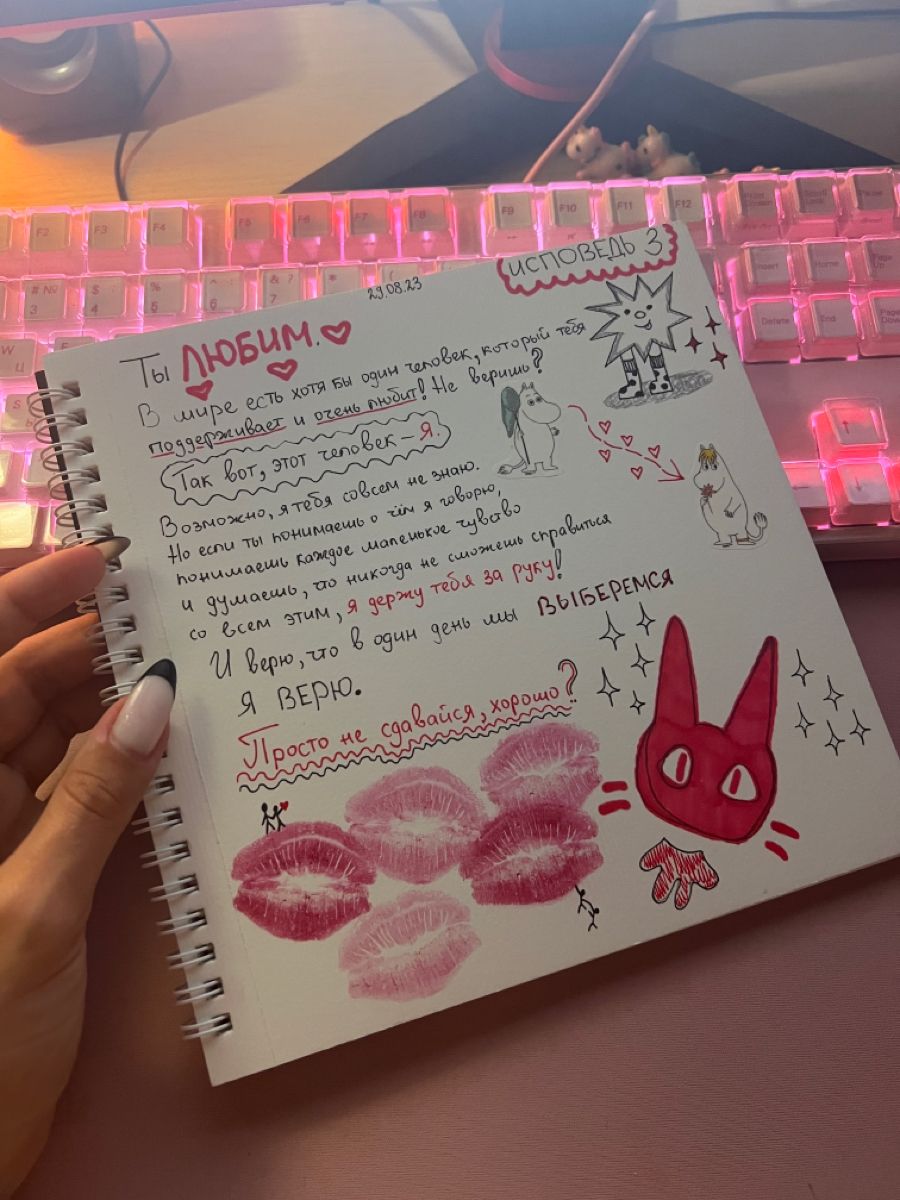 F2 F3 F4 F5 F6 F7 F8 F9 F10 F11 F12 Print Screen Scroll Lock Pause
# № 3 $ ; 4 % : 5 ^ 6 & ? 7 * ( Insert Home Page Up
W Ц Delete End Page Down
S
↑
29.08.23
ИСПОВЕДЬ 3
Ты ЛЮБИМ.
В мире есть хотя бы один человек, который тебя
поддерживает и очень любит! Не веришь?
Так вот, этот человек – я.
Возможно, я тебя совсем не знаю.
Но если ты понимаешь о чём я говорю,
понимаешь каждое маленькое чувство
и думаешь, что никогда не сможешь справиться
со всем этим, я держу тебя за руку!
И верю, что в один день мы ВЫБЕРЕМСЯ
Я ВЕРЮ.
Просто не сдавайся, хорошо?